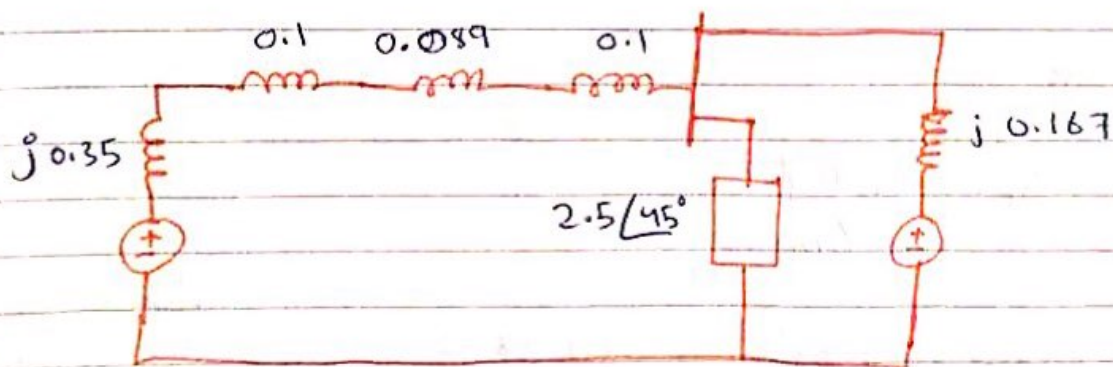 0.1 0.0089 0.1
j 0.35
j 0.167
2.5∠45°
+
-
+
-